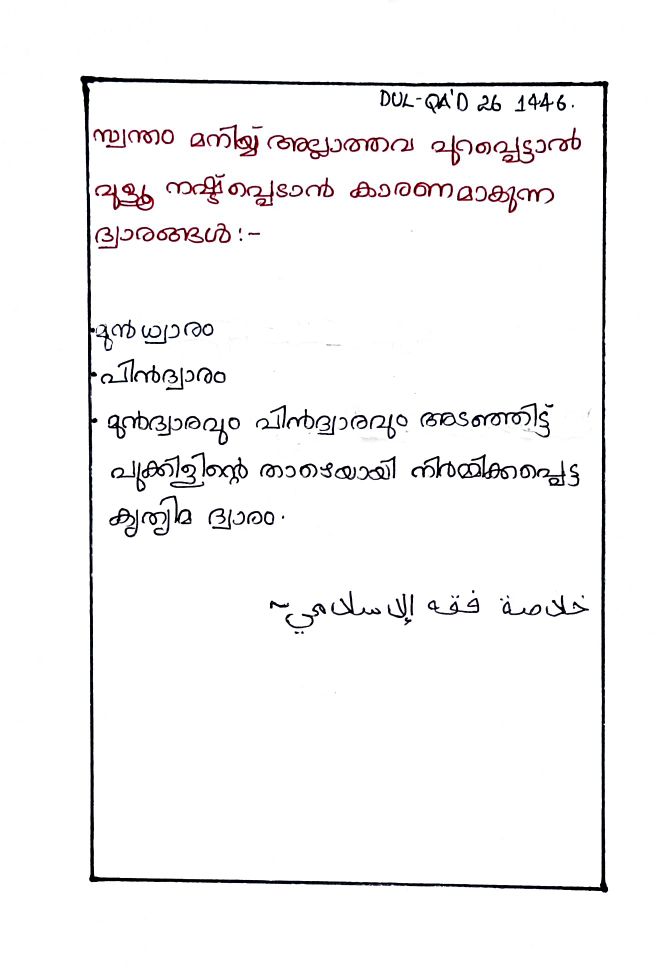 DUL-QA'D 26 1446.
സ്വന്തം മനിയ്യ് അല്ലാത്തവ പുറപ്പെട്ടാൽ
വുളൂ നഷ്ട്ടപ്പെടാൻ കാരണമാകുന്ന
ദ്വാരങ്ങൾ:-
•മുൻധ്വാരം
•പിൻദ്വാരം
• മുൻദ്വാരവും പിൻദ്വാരവും അടഞ്ഞിട്ട്
പുക്കിളിന്റെ താഴെയായി നിർമ്മിക്കപ്പെട്ട
കൃത്രിമ ദ്വാരം.
خلاصة فقه الإسلامي~